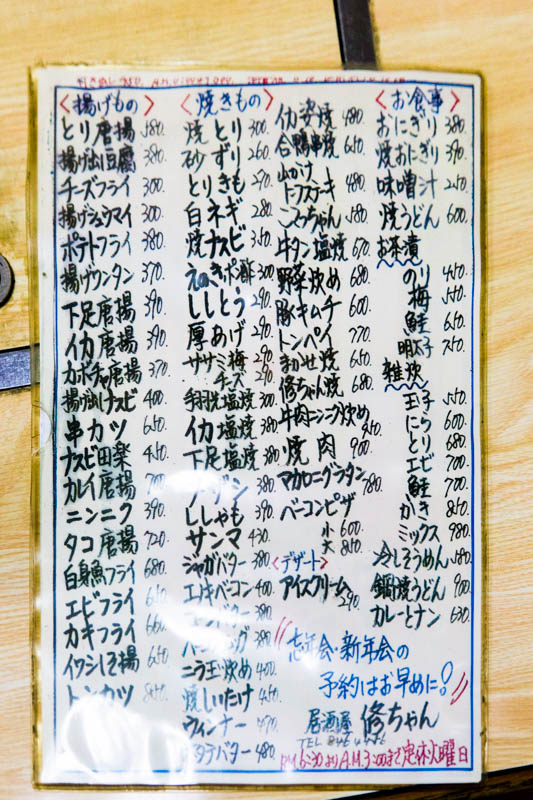 <揚げもの>
とり唐揚 480.
揚げ出し豆腐 380.
チーズフライ 300.
揚げシュウマイ 300
ポテトフライ 380.
揚げワンタン 370.
下足唐揚 390.
イカ唐揚 390.
カボチャ唐揚 370.
揚げ出しナスビ 400.
串カツ 650.
ナスビ田楽 450.
カレイ唐揚 700
ニンニク 390.
タコ唐揚 720
白身魚フライ 680.
エビフライ 650
カキフライ 660
イワシしそ揚 650
トンカツ 850
<焼きもの>
焼とり 300.
砂ずり 260.
とりきも 270.
白ネギ 280.
焼ナスビ 350.
えのきポン酢 300
ししとう 290.
厚あげ 290.
ササミ梅 290
チーズ 290.
手羽先塩焼 300.
イカ塩焼 380.
下足塩焼 380
380.
ししゃも 390.
サンマ 430.
ジャガバター 380.
エノキベーコン 400.
バター 380.
380
ニラ玉炒め 400.
焼しいたけ 450.
ウィンナー 470.
ホタテバター 480.
イカ姿焼 480.
合鴨串焼 650.
山かけ
トーフステーキ 480.
こころちゃん 580.
牛タン塩焼 670
野菜炒め 680.
豚キムチ 600.
トンペイ 770
まかせ焼 650.
修ちゃん焼 680
牛肉ニンニク炒め
焼肉 900.
マカロニグラタン 780.
ベーコンピザ
小 600.
大 850.
<デザート>
アイスクリーム 290.
<お食事>
おにぎり 380.
焼おにぎり 390.
味噌汁 250.
焼うどん 600.
お茶漬
のり 450.
梅 550.
鮭 650.
明太子 750.
雑炊
玉子 550
にら 600
とり 680.
エビ 700.
鮭 700
かき 850.
ミックス 980.
冷しそうめん 580
鍋焼うどん 900
カレーとナン 630
忘年会・新年会の
予約はお早めに!
居酒屋 修ちゃん
P.M.6:30よりA.M.3:00まで定休火曜日